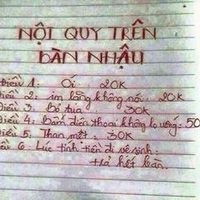 NỘI QUY TRÊN
BÀN NHẬU
Điều 1: Ói 20K
Điều 2: im lặng không nói: 20K
Điều 3: Bỏ tua 30K
Điều 4: Bấm điện thoại không lo uống: 50
Điều 5: Than mệt: 30K
Điều 6: Lúc tính tiền đi vệ sinh:
trả hết bàn.